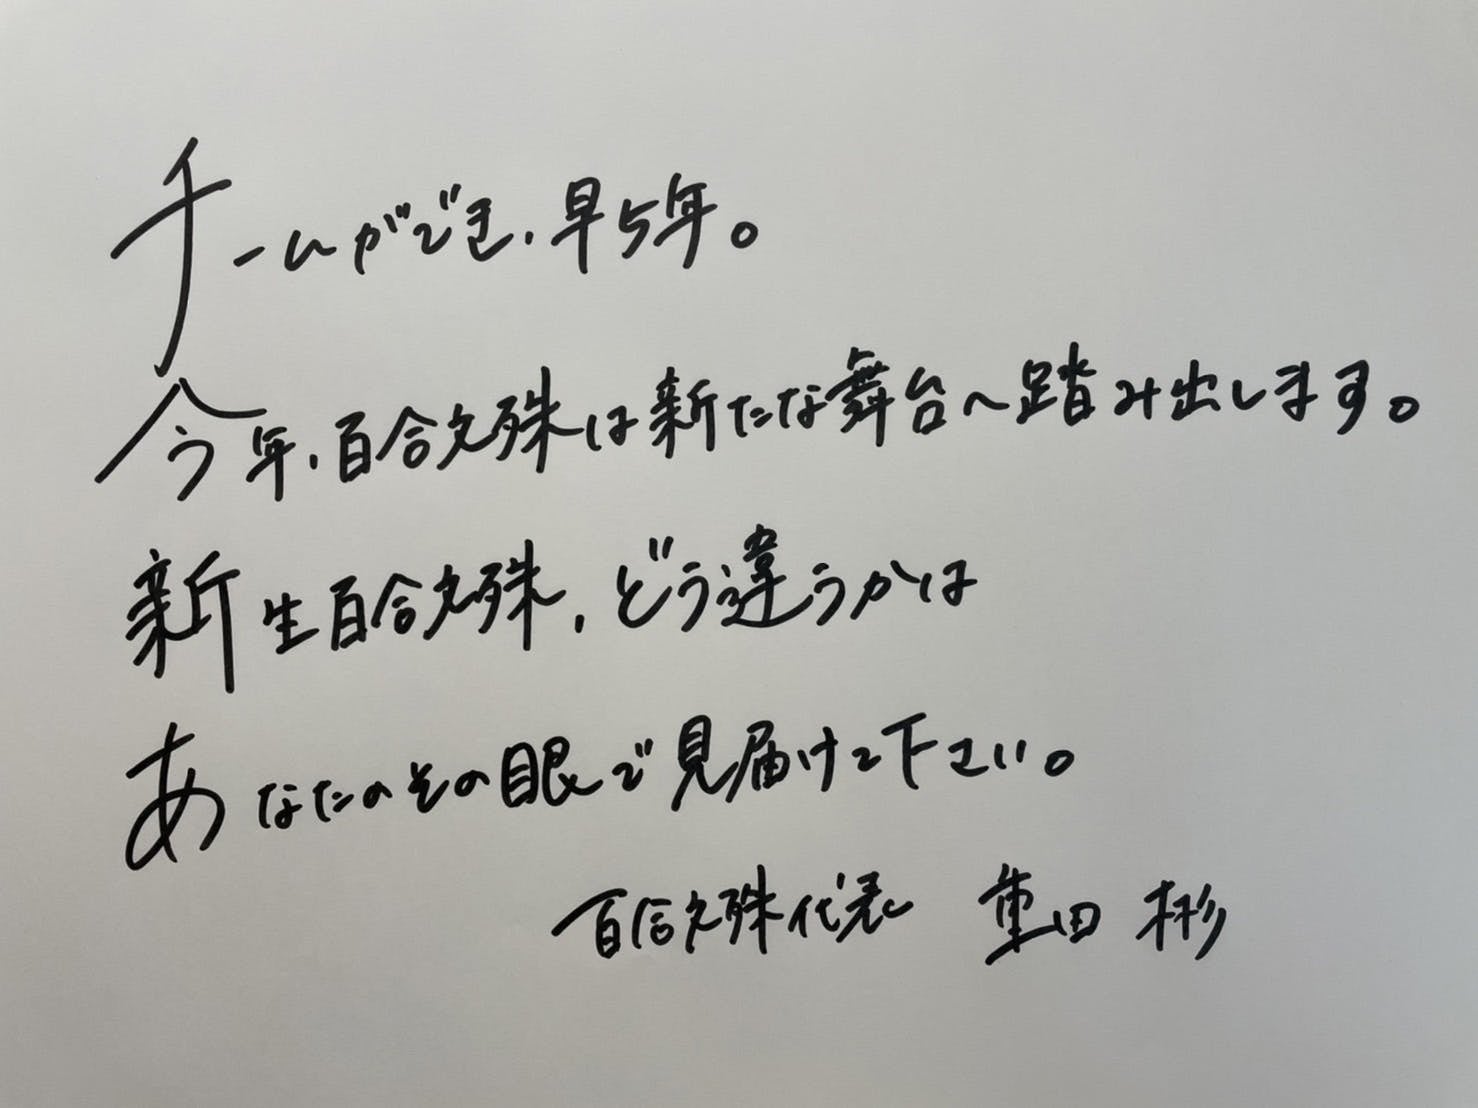 チームができ、早5年。
今年、百合文殊は新たな舞台へ踏み出します。
新生百合文殊、どう違うかは
あなたのその眼で見届けて下さい。
百合文殊代表 重田 彬